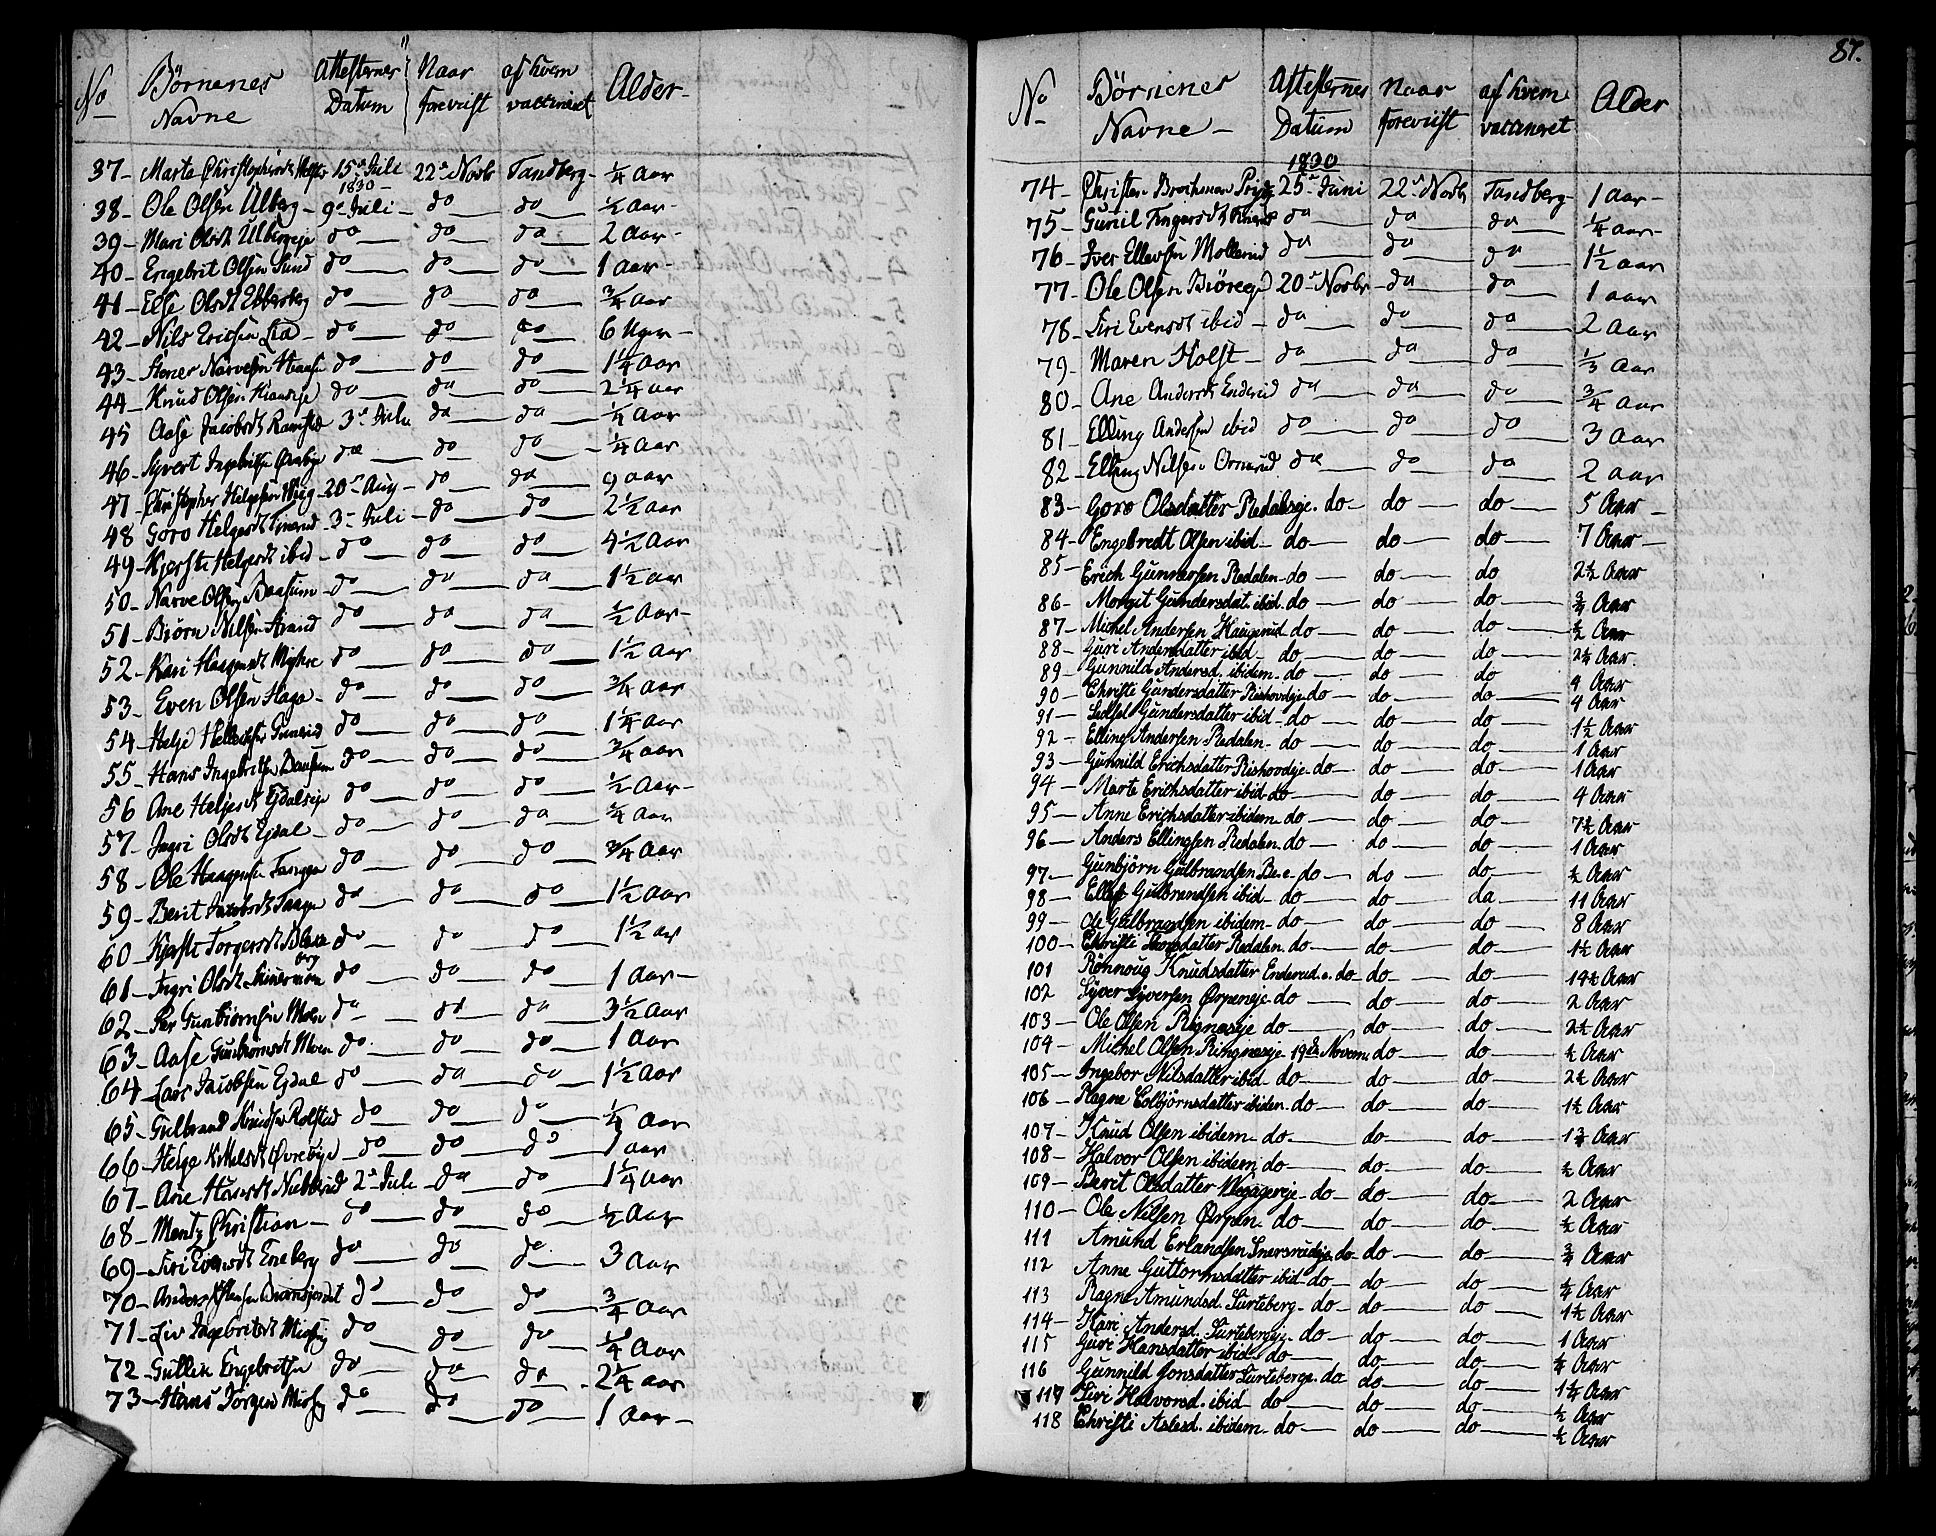 No Børnenes Navne Attesternes Datum Naar foreviist af hvem vaccineret Alder
37 Marte 15de Juli 22de Novbr Tandberg 1/4 Aar
1830
38 Ole Olsen Ulberg 9de Juli do do 1/2 Aar
39 Mari Olsdt Ulbergeje do do do 2 Aar
40 Engebrit Olsen Lund do do do 1 Aar
41 Else Olsdt do do do 3/4 Aar
42 Nils Ericsen Lia do do do 6 Uger
43 Stener Narvesen do do do 1 1/4 Aar
44 Knud Olsen do do do 2 1/4 Aar
45 Aase Jacobsdt Ramstad 3de Juli do do 1/4 Aar
46 Syvert Ingebritsen do do do 1/4 Aar
47 Christopher Helgesen 20de Aug do do 9 Aar
48 Goro Helgesdt 3de Juli do do 2 1/2 Aar
49 Kjersti Helgesdt ibid do do do 4 1/2 Aar
50 Narve Olsen do do do 1 1/2 Aar
51 Biørn Nilsen do do do 1/2 Aar
52 Kari Haagensdt Myhre do do do 1 1/2 Aar
53 Even Olsen Haga do do do 3/4 Aar
54 Helje do do do 1 1/4 Aar
55 Hans Ingebritsen do do do 3/4 Aar
56 Ane Heljesdt do do do 1/2 Aar
57 Ingri Olsdt Ejdal do do do 3/4 Aar
58 Ole Haagensen do do do 3/4 Aar
59 Berit Jacobsdt do do do 1 1/2 Aar
60 Kjersti Torgersdt do do do 1 1/2 Aar
61 Ingri Olsdt do do do 1 Aar
62 Per Gunbiørnsen Moen do do do 3 1/2 Aar
63 Aase Gunbiørnsdt Moen do do do 1 Aar
64 Lars Jacobsen Ejdal do do do 1 1/2 Aar
65 Gulbrand Knudsen Rolstad do do do 1/4 Aar
66 Helge Kittelsdt Øvrebye do do do 1 Aar
67 Ane 2de Juli do do 1 1/4 Aar
68 Mentz Christian do do do 1/2 Aar
69 Siri Evensdt Eneberg do do do 3 Aar
70 Anders do do do 3/4 Aar
71 Liv Ingebritsdt do do do 1/4 Aar
72 Gullik Engebretsen do do do 2 1/4 Aar
73 Hans Jørgen do do do 1 Aar
87.
No Børnenes Navne Attesternes Datum Naar foreviist af hvem vaccineret Alder
1830
74 Christen 25de Juni 22de Novbr Tandberg 1 Aar
75 Gunil do do do 1/4 Aar
76 Iver Ellevsen Mollerud do do do 1 1/2 Aar
77 Ole Olsen 20de Novbr do do 1 Aar
78 Siri Evensdt ibid do do do 2 Aar
79 Maren Holst do do do 1/3 Aar
80 Ane Andersdt Enderud do do do 3/4 Aar
81 Elling Andersen ibid do do do 3 Aar
82 Elling Nilsen Ormerud do do do 2 Aar
83 Goro Olsdatter Redalseje do do do 5 Aar
84 Engebredt Olsen ibid do do do 7 Aar
85 Erich Gunnersen Redalen do do do 2 1/2 Aar
86 Margit Gundersdat. ibid do do do 3/4 Aar
87 Michel Andersen Haugerud do do do 1/2 Aar
88 Guri Andersdatter ibid do do do 2 1/4 Aar
89 Gunnild Andersd. ibidem do do do 4 Aar
90 Christi Gundersdatter Rishovdeje do do do 4 Aar
91 Sedsel Gundersdatter ibid do do do 1 1/2 Aar
92 Elling Andersen Redalen do do do 1 Aar
93 Gunnild Erichsdatter Rishovdeje do do do 1 Aar
94 Marte Erichsdatter ibid do do do 4 Aar
95 Anne Erichsdatter ibidem do do do 7 1/2 Aar
96 Anders Ellingsen Redalen do do do 1 Aar
97 Gunbjörn Gulbrandsen Re. e. do do do 1/2 Aar
98 Ellef Gulbrandsen ibid do do do 11 Aar
99 Ole Gulbrandsen ibidem do do do 8 Aar
100 Christi Thorsdatter Redalen do do do 1 1/2 Aar
101 Rönnoug Knudsdatter Enderud. e. do do do 19 1/2 Aar
102 Syver Syversen Ørpeneje do do do 2 Aar
103 Ole Olsen Ringneseje do do do 2 1/2 Aar
104 Michel Olsen Ringneseje 19de Novem do do 1/2 Aar
105 Ingebor Nilsdatter ibid do do do 2 1/2 Aar
106 Ragne Colbjörnsdatter ibidem do do do 1 1/2 Aar
107 Knud Olsen ibidem do do do 1 3/4 Aar
108 Halvor Olsen ibidem do do do 1/2 Aar
109 Berit Olsdatter do do do 2 Aar
110 Ole Nilsen Ørpen do do do 1/2 Aar
111 Amund Erlandsen Snersrudeje do do do 3/4 Aar
112 Anne Guttormsdatter ibid do do do 1/4 Aar
113 Ragne Amundsd. Surteberg do do do 1 1/2 Aar
114 Kari Andersd. Surtebergeje do do do 1 Aar
115 Guri Hansdatter ibid do do do 1/4 Aar
116 Gunnild Jonsdatter Surteberge do do do 1 1/4 Aar
117 Siri Halvorsd. ibid do do do 1/2 Aar
118 Christi Aslesd. ibidem do do do 1/2 Aar